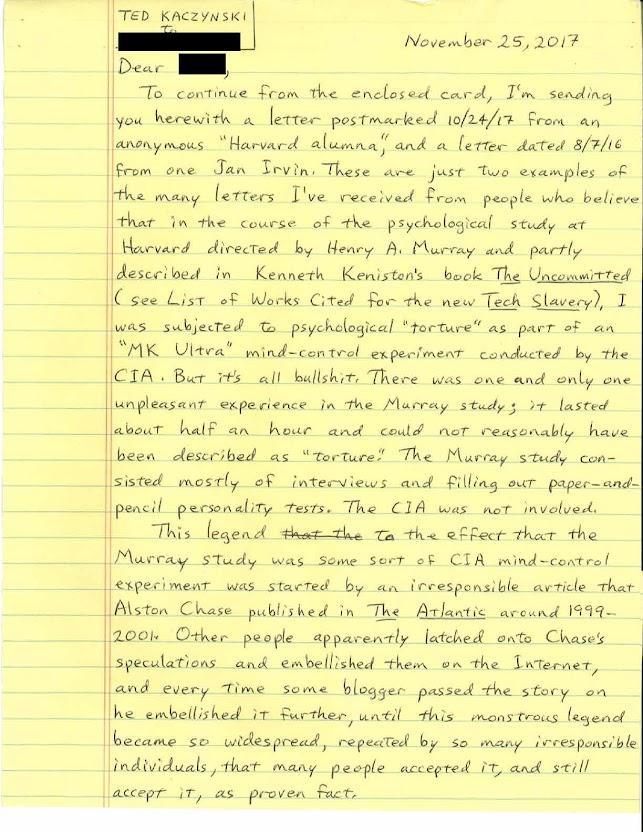 TED KACZYNSKI
to
November 25, 2017
Dear ,
To continue from the enclosed card, I'm sending
you herewith a letter postmarked 10/24/17 from an
anonymous "Harvard alumna," and a letter dated 8/7/16
from one Jan Irvin. These are just two examples of
the many letters I've received from people who believe
that in the course of the psychological study at
Harvard directed by Henry A. Murray and partly
described in Kenneth Keniston's book The Uncommitted
(see List of Works Cited for the new Tech Slavery), I
was subjected to psychological "torture" as part of an
"MK Ultra" mind-control experiment conducted by the
CIA. But it's all bullshit. There was one and only one
unpleasant experience in the Murray study; it lasted
about half an hour and could not reasonably have
been described as "torture." The Murray study con-
sisted mostly of interviews and filling out paper-and-
pencil personality tests. The CIA was not involved.
This legend that the to the effect that the
Murray study was some sort of CIA mind-control
experiment was started by an irresponsible article that
Alston Chase published in The Atlantic around 1999-
2001. Other people apparently latched onto Chase's
speculations and embellished them on the Internet,
and every time some blogger passed the story on
he embellished it further, until this monstrous legend
became so widespread, repeated by so many irresponsible
individuals, that many people accepted it, and still
accept it, as proven fact.